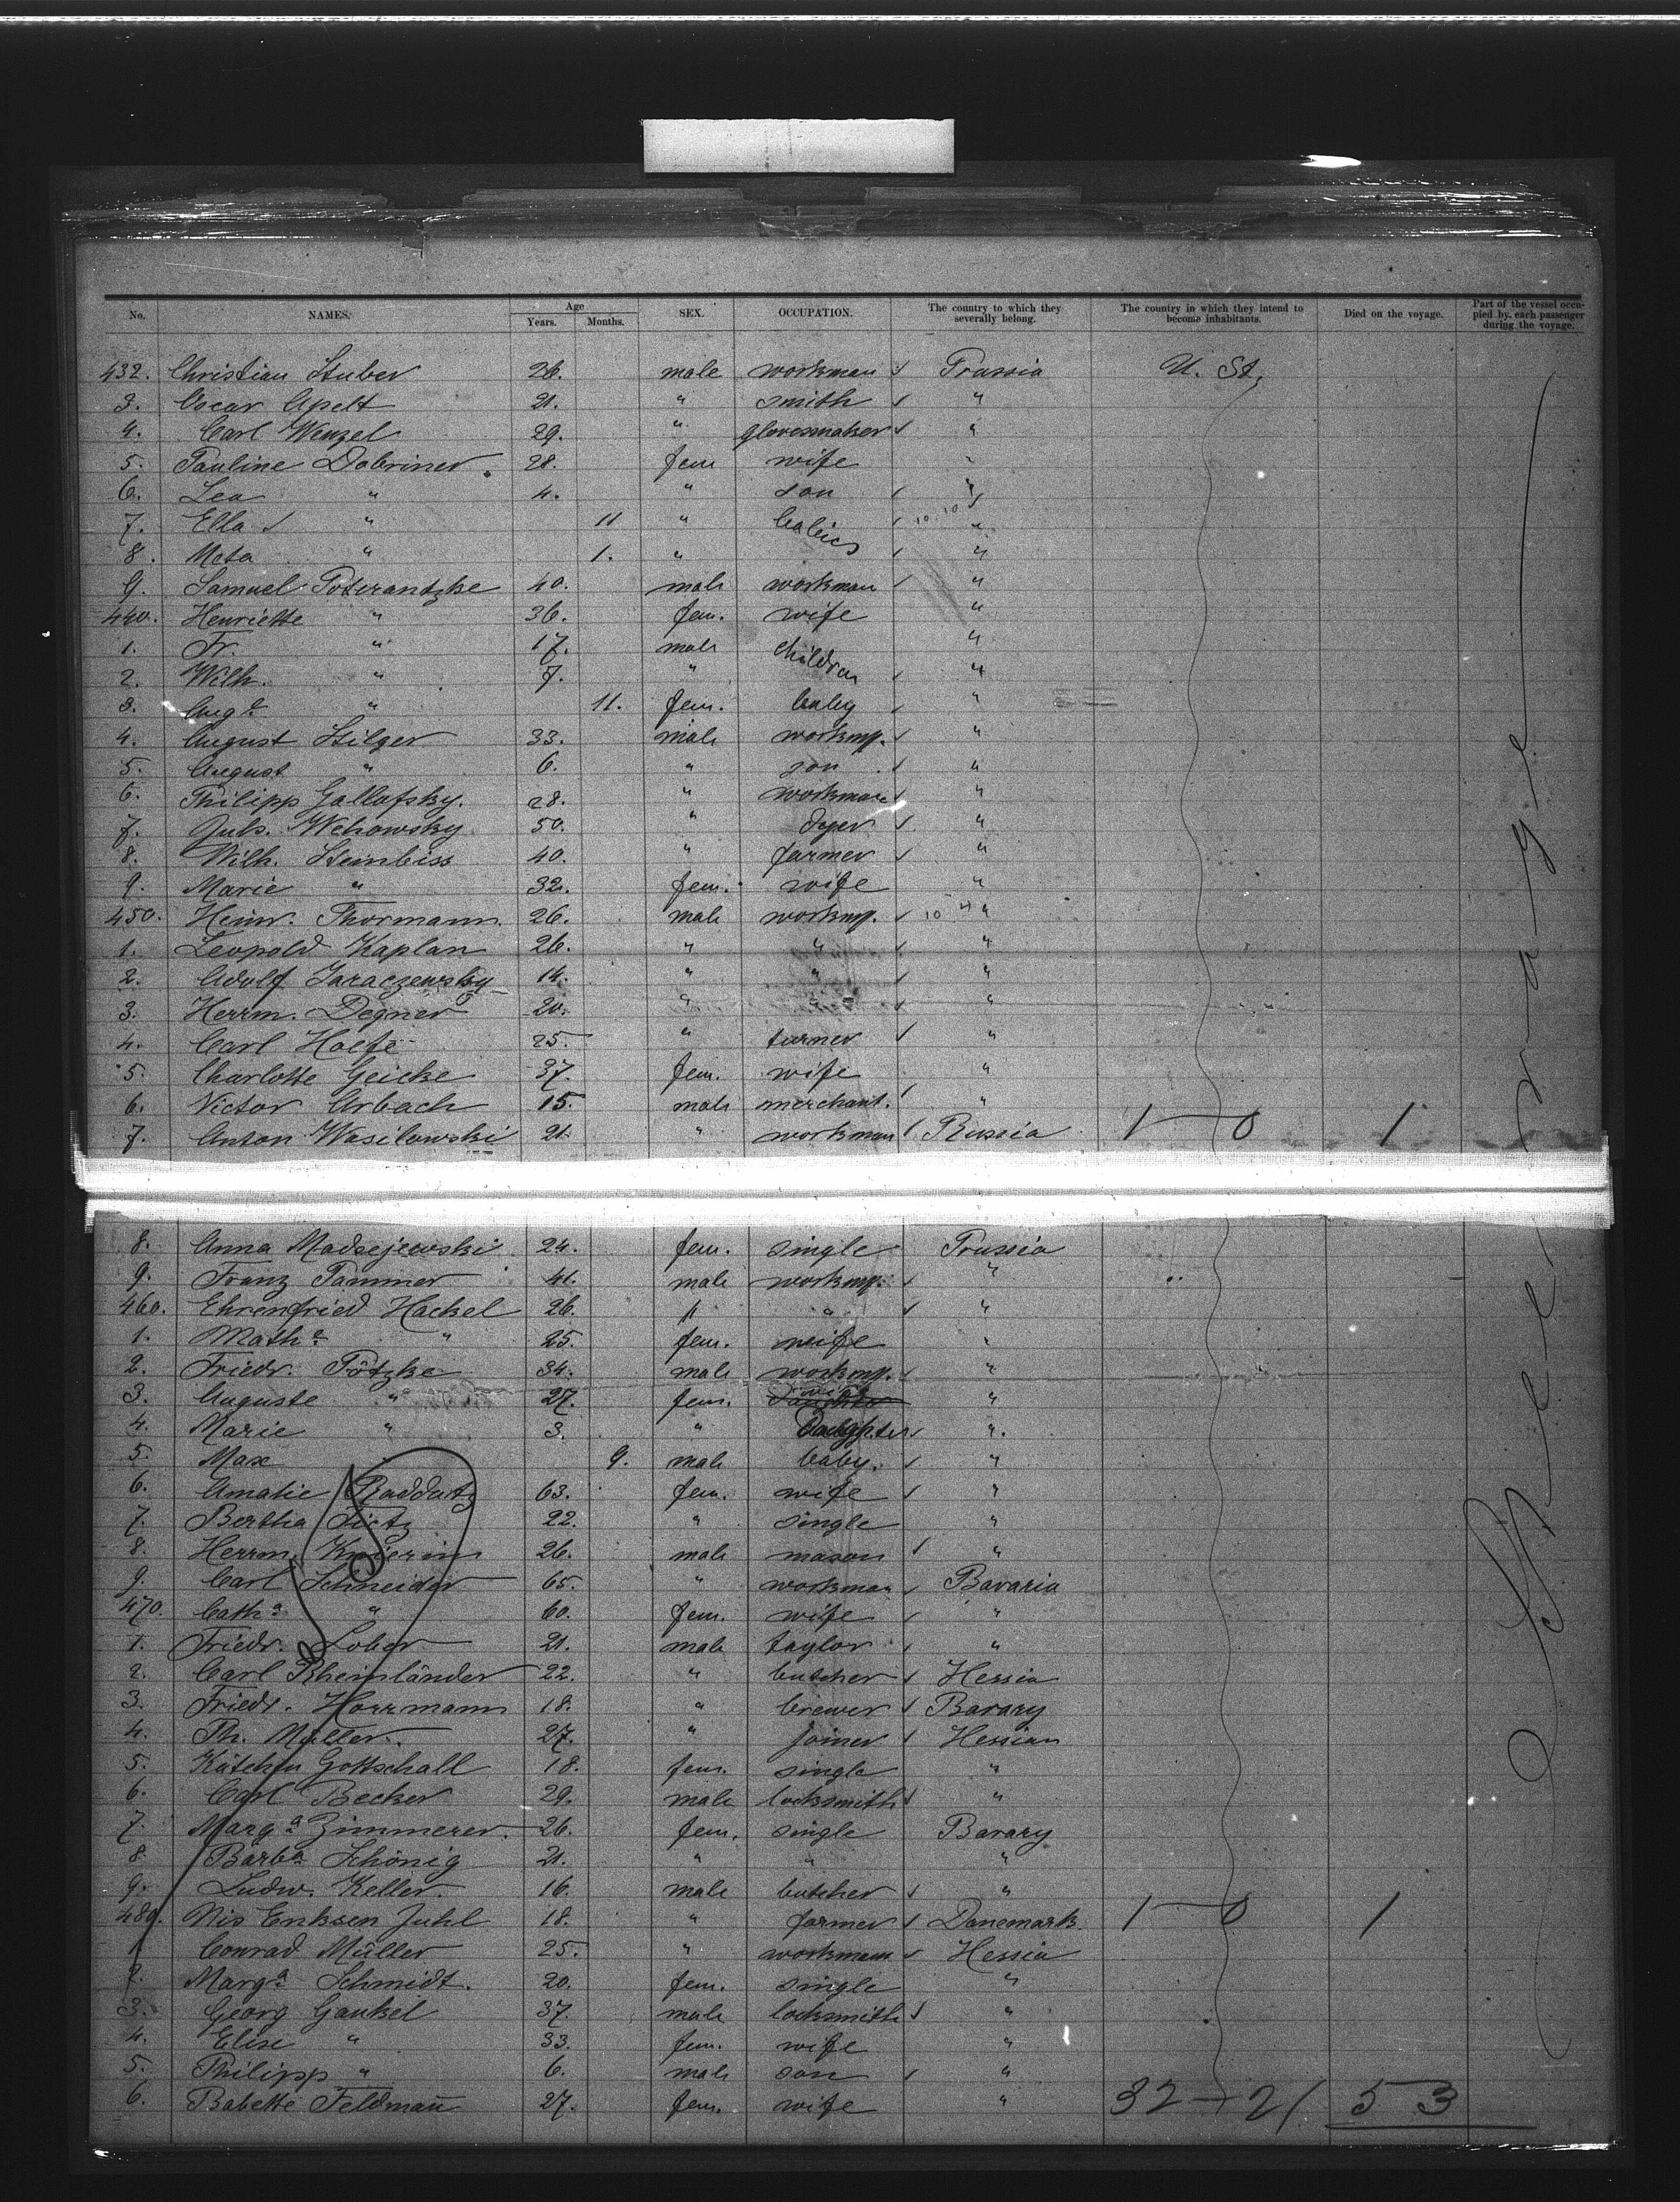 No. NAMES. Age Years. Months. SEX. OCCUPATION. The country to which they severally belong. The country in which they intend to become inhabitants. Died on the voyage. Part of the vessel occupied by each passenger during the voyage.
432. Christian Stuber 26. male workman Prussia U. St.
3. Oscar Apelt 21. " smith "
4. Carl Wenzel 29. " glovesmaker "
5. Pauline Dobriner 28. fem wife "
6. Lea " 4. " son "
7. Ella " 11 " babies "
8. Meta " 1. " "
9. Samuel Poterantzke 40. male workman "
440. Henriette " 36. fem. wife "
1. Fr. " 17. male children "
2. Wilh. " 7. " "
3. Auge " 11. fem. baby "
4. August Hilger 33. male workmp. "
5. August " 6. " son "
6. Philipp Gallofsky. 28. " workman "
7. Juls. Wehowsky 50. " dyer "
8. Wilh. Steinbiss 40. " farmer "
9. Marie " 32. fem. wife "
450. Heinr. Thormann. 26. male workmp. "
1. Leopold Kaplan 26. " " "
2. Adolf Jaraczewsky 14. " " "
3. Herrm. Degner 20. " " "
4. Carl Hoefe 25. " turner "
5. Charlotte Geicke 37. fem. wife "
6. Victor Arbach 15. male merchant. "
7. Anton Wasilowski 21. " workman Russia 1 — 0 1
8. Anna Madsejewski 24. fem. single Prussia
9. Franz Pammer 41. male workmp. "
460. Ehrenfried Hackel 26. " " "
1. Mathe " 25. fem. wife "
2. Friedr. Pötzke 34. male workmp. "
3. Auguste " 27. fem. wife "
4. Marie " 3. " Daughter "
5. Max 9. male baby. "
6. Amalie Raddatz 63. fem. wife "
7. Bertha Tietz 22. " single "
8. Herrm. Knierim 26. male mason "
9. Carl Schneider 65. " workman Bavaria
470. Catha " 60. fem. wife "
1. Friedr. Lober 21. male taylor "
2. Carl Rheinländer 22. " butcher Hessia
3. Friedr. Horrmann 18. " brewer Bavary
4. Ph. Müller 27. " joiner Hessian
5. Kätchen Gottschall 18. fem. single "
6. Carl Becker 29. male locksmith "
7. Marga Zimmerer. 26. fem. single Bavary
8. Barba Schönig 21. " " "
9. Ludw. Keller. 16. male butcher "
480. Nis Enksen Juhl 18. " farmer Danemark 1 — 0 1
1 Conrad Müller 25. " workman Hessia
2. Marga Schmidt. 20. fem. single "
3. Georg Gaukel 37. male locksmith "
4. Elise " 33. fem. wife "
5. Philipp " 6. male son "
6. Babette Feldmañ 27. fem. wife " 32 — 21 53
Steerage